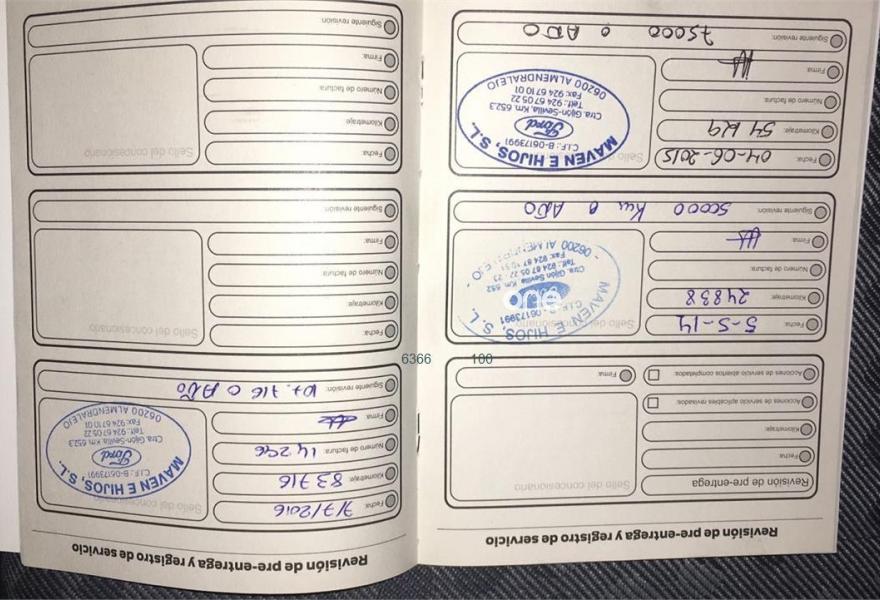 Revisión de pre-entrega y registro de servicio
Revisión de pre-entrega
Fecha:
Kilometraje:
Acciones de servicio aplicables revisados:
Acciones de servicio abiertos completados:
Firma:
Sello del concesionario
Fecha: 5-5-14
Kilometraje: 24838
Número de factura:
Firma:
Siguiente revisión: 50000 Km o AÑO
Sello del concesionario
MAVEN E HIJOS, S. L.
C.I.F.: B-06173991
Ctra. Gijón Sevilla Km. 652
06200 ALMENDRALEJO
Fecha: 04-06-2015
Kilometraje:
Número de factura:
Firma:
Siguiente revisión: 75000 o AÑO
MAVEN E HIJOS, S.L.
C.I.F.: B-06173991
Ford
Ctra. Gijón-Sevilla, Km. 652,3
Telf.: 924 67 05 22
Fax: 924 67 10 01
06200 ALMENDRALEJO
Revisión de pre-entrega y registro de servicio
Fecha: 7/7/2016
Kilometraje: 83716
Número de factura: 14296
Firma:
Siguiente revisión: o AÑO
Sello del concesionario
MAVEN E HIJOS, S.L.
C.I.F.: B-06173991
Ford
Ctra. Gijón-Sevilla, Km. 652,3
Telf.: 924 67 05 22
Fax: 924 67 10 01
06200 ALMENDRALEJO
Fecha:
Kilometraje:
Número de factura:
Firma:
Siguiente revisión:
Sello del concesionario
Fecha:
Kilometraje:
Número de factura:
Firma:
Siguiente revisión:
Sello del concesionario
one
6366 100